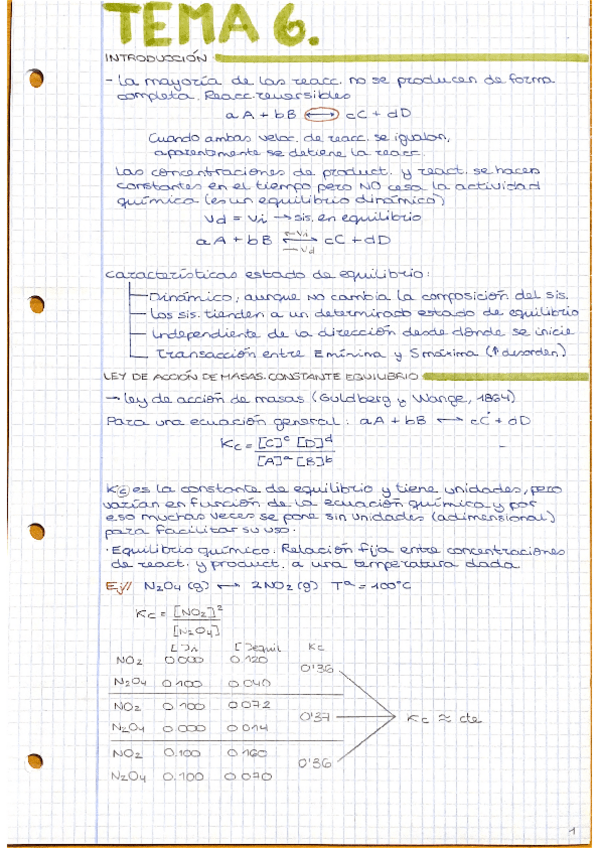 TEMA 6.
INTRODUCCIÓN
- La mayoría de las reacc. no se producen de forma
completa. Reacc. reversibles
aA + bB ⟷ cC + dD
Cuando ambas veloc. de reacc. se igualan,
aparentemente se detiene la reacc.
Las concentraciones de product. y react. se hacen
constantes en el tiempo pero NO cesa la actividad
química (es un equilibrio dinámico)
Vd = Vi → sis. en equilibrio
aA + bB ⟷ cC + dD
← Vi
→ Vd
Características estado de equilibrio:
Dinámico; aunque NO cambia la composición del sis.
Los sis. tienden a un determinado estado de equilibrio
Independiente de la dirección desde donde se inicie
Transacción entre E mínina y S máxima (↑ desorden)
LEY DE ACCIÓN DE MASAS. CONSTANTE EQUILIBRIO
→ Ley de acción de masas (Guldberg y Wange, 1864)
Para una ecuación general: aA + bB ⟷ cC + dD
Kc = [C]^c [D]^d
[A]^a [B]^b
Kc es la constante de equilibrio y tiene unidades, pero
varían en función de la ecuación química y por
eso muchas veces se pone sin unidades (adimensional)
para facilitar su uso.
· Equilibrio químico. Relación fija entre concentraciones
de react. y product. a una temperatura dada
Ej// N₂O₄ (g) ⟷ 2NO₂ (g) Tª = 100°C
Kc = [NO₂]²
[N₂O₄]
[ ]in [ ]equil Kc
NO₂ 0.000 0.120
0'36
N₂O₄ 0.100 0.040
NO₂ 0.100 0.072
0'37 Kc ≈ cte
N₂O₄ 0.000 0.014
NO₂ 0.100 0.160
0'36
N₂O₄ 0.100 0.070
1